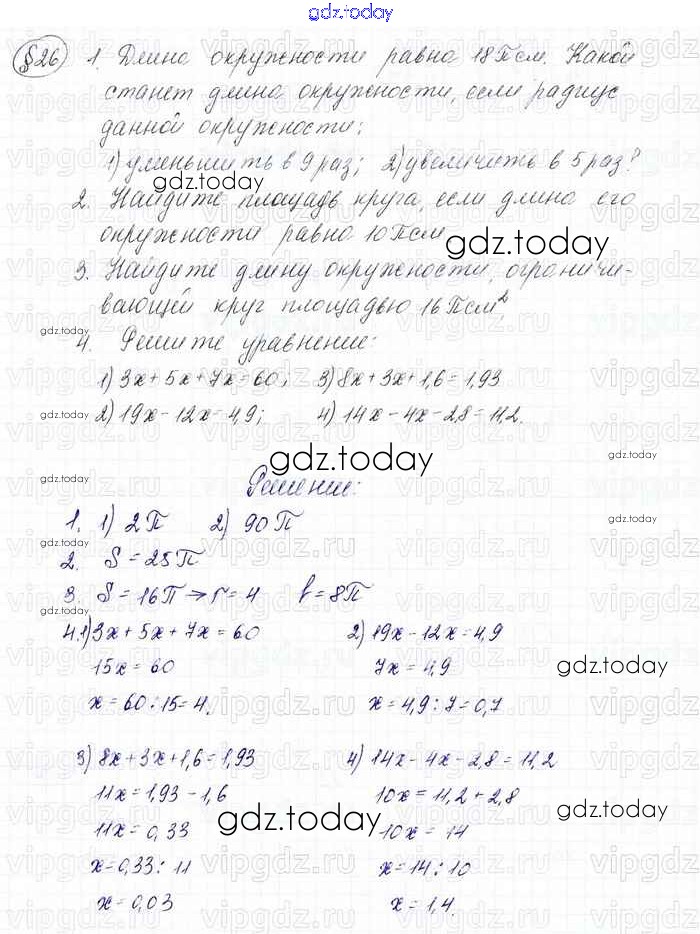 gdz.today
§26 1. Длина окружности равна 18π см. Какой
станет длина окружности, если радиус
данной окружности:
1) уменьшить в 9 раз; 2) увеличить в 5 раз?
gdz.today
2. Найдите площадь круга, если длина его
окружности равна 10π см
gdz.today
3. Найдите длину окружности, ограничи-
вающей круг площадью 16π см²
gdz.today
4. Решите уравнение:
1) 3x+5x+7x=60; 3) 8x+3x+1,6=1,93
gdz.today
gdz.today
2) 19x-12x=4,9; 4) 14x-4x-2,8=11,2.
gdz.today
gdz.today
gdz.today
Решение:
1. 1) 2π 2) 90π
gdz.today
2. S=25π
3. S=16π→r=4 l=8π
gdz.today
4.1) 3x+5x+7x=60 2) 19x-12x=4,9
15x=60 7x=4,9
gdz.today
x=60:15=4. x=4,9:7=0,7
3) 8x+3x+1,6=1,93 4) 14x-4x-2,8=11,2
11x=1,93-1,6 10x=11,2+2,8
gdz.today
gdz.today
11x=0,33 10x=14
x=0,33:11 x=14:10
x=0,03 x=1,4.
gdz.today